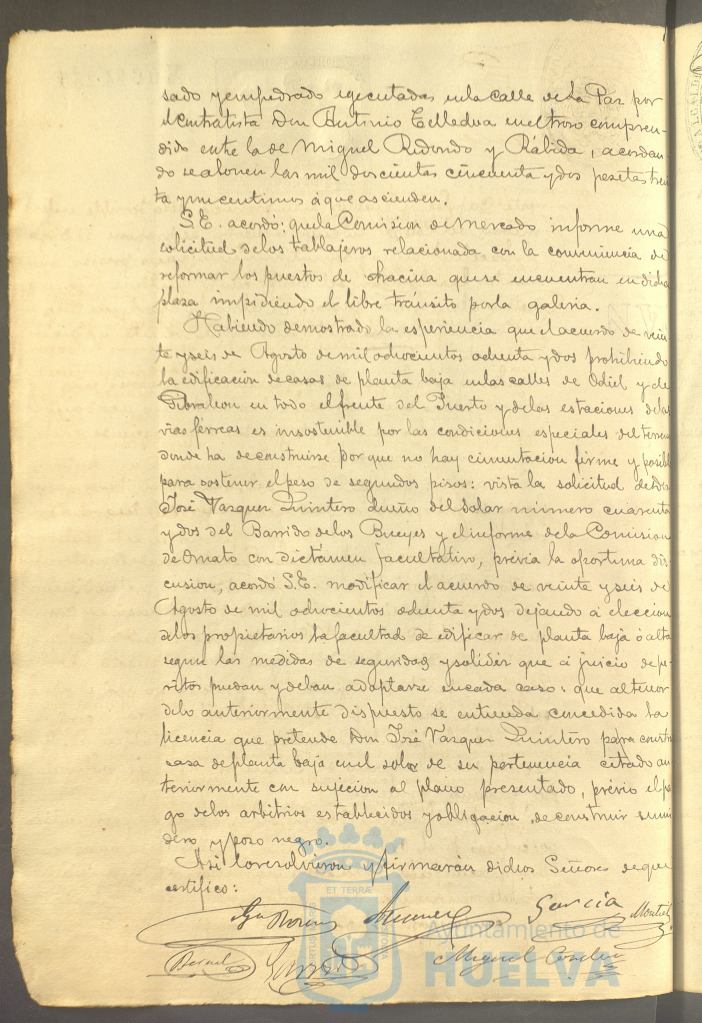 sado y empedrado egecutadas en la calle de la Paz por
el contratista Don Antonio Telledua en el trozo compren-
dido entre la de Miguel Redondo y Rábida, acordan
do se abonen las mil doscientas cincuenta y dos pesetas trein
ta y un centimos á que ascienden.
S.E. acordó: que la Comision de Mercado informe una
solicitud de los tablajeros relacionada con la conveniencia de
reformar los puestos de chacina que se encuentran en dicha
plaza impidiendo el libre tránsito por la galeria.
Habiendo demostrado la esperiencia que el acuerdo de vein
te y seis de Agosto de mil ochocientos ochenta y dos prohibiendo
la edificacion de casas de planta baja en las calles de Odiel y de
Gibraleon en todo el frente del Puerto y de las estaciones de las
vias férreas es insostenible por las condiciones especiales del terreno
donde ha de construirse por que no hay cimentacion firme y posible
para sostener el peso de segundos pisos: vista la solicitud de Don
José Vazquez Quintero dueño del solar número cuarenta
y dos del Barrido de los Bueyes y el informe de la Comision
de Ornato con dictámen facultativo, prévia la oportuna dis
cusion, acordó S.E. modificar el acuerdo de veinte y seis de
Agosto de mil ochocientos ochenta y dos dejando á eleccion
de los propietarios la facultad de edificar de planta baja ó alta
segun las medidas de seguridad y solidez que á juicio de pe
ritos puedan y deban adaptarse en cada caso: que al tenor
de lo anteriormente dispuesto se entienda concedida la
licencia que pretende Don José Vazquez Quintero para constr
casa de planta baja en el solar de su pertenencia citado an
teriormente con sujecion al plano presentado, prévio el pa
go de los arbitrios establecidos y obligacion de construir sumi
dero y pozo negro.
Asi lo resolvieron y firmarán dichos Señores de que
certifico:
García
Montiel
Bernal
Miguel
Ayuntamiento de
HUELVA